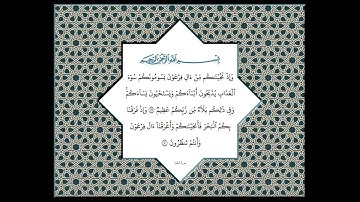 بسم الله الرحمن الرحيم
وَإِذْ نَجَّيْنَاكُم مِّنْ ءَالِ فِرْعَوْنَ يَسُومُونَكُمْ سُوٓءَ
الْعَذَابِ يُذَبِّحُونَ أَبْنَآءَكُمْ وَيَسْتَحْيُونَ نِسَآءَكُمْ
وَفِى ذَٰلِكُم بَلَآءٌ مِّن رَّبِّكُمْ عَظِيمٌ وَإِذْ فَرَقْنَا
بِكُمُ الْبَحْرَ فَأَنجَيْنَاكُمْ وَأَغْرَقْنَا ءَالَ فِرْعَوْنَ
وَأَنتُمْ تَنظُرُونَ